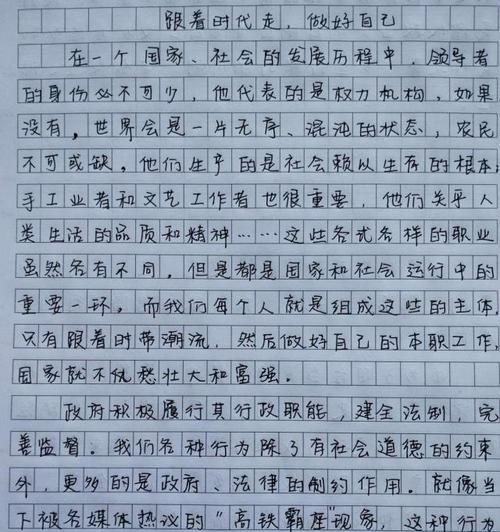 跟着时代走，做好自己
在一个国家、社会的发展历程中，领导者
的身份必不可少，他代表的是权力机构，如果
没有，世界会是一片无序、混沌的状态，农民
不可或缺，他们生产的是社会赖以生存的根本；
手工业者和文艺工作者也很重要，他们关乎人
类生活的品质和精神……这些各式各样的职业
虽然各有不同，但是都是国家和社会运行中的
重要一环，而我们每个人就是组成这些的主体，
只有跟着时带潮流，然后做好自己的本职工作，
国家就不仇愁壮大和富强。
政府积极履行其行政职能，建全法制，完
善监督。我们各种行为除了有社会道德的约束
外，更多的是政府、法律的制约作用。就像当
下被各媒体热议的“高铁霸座”现象，这种行为